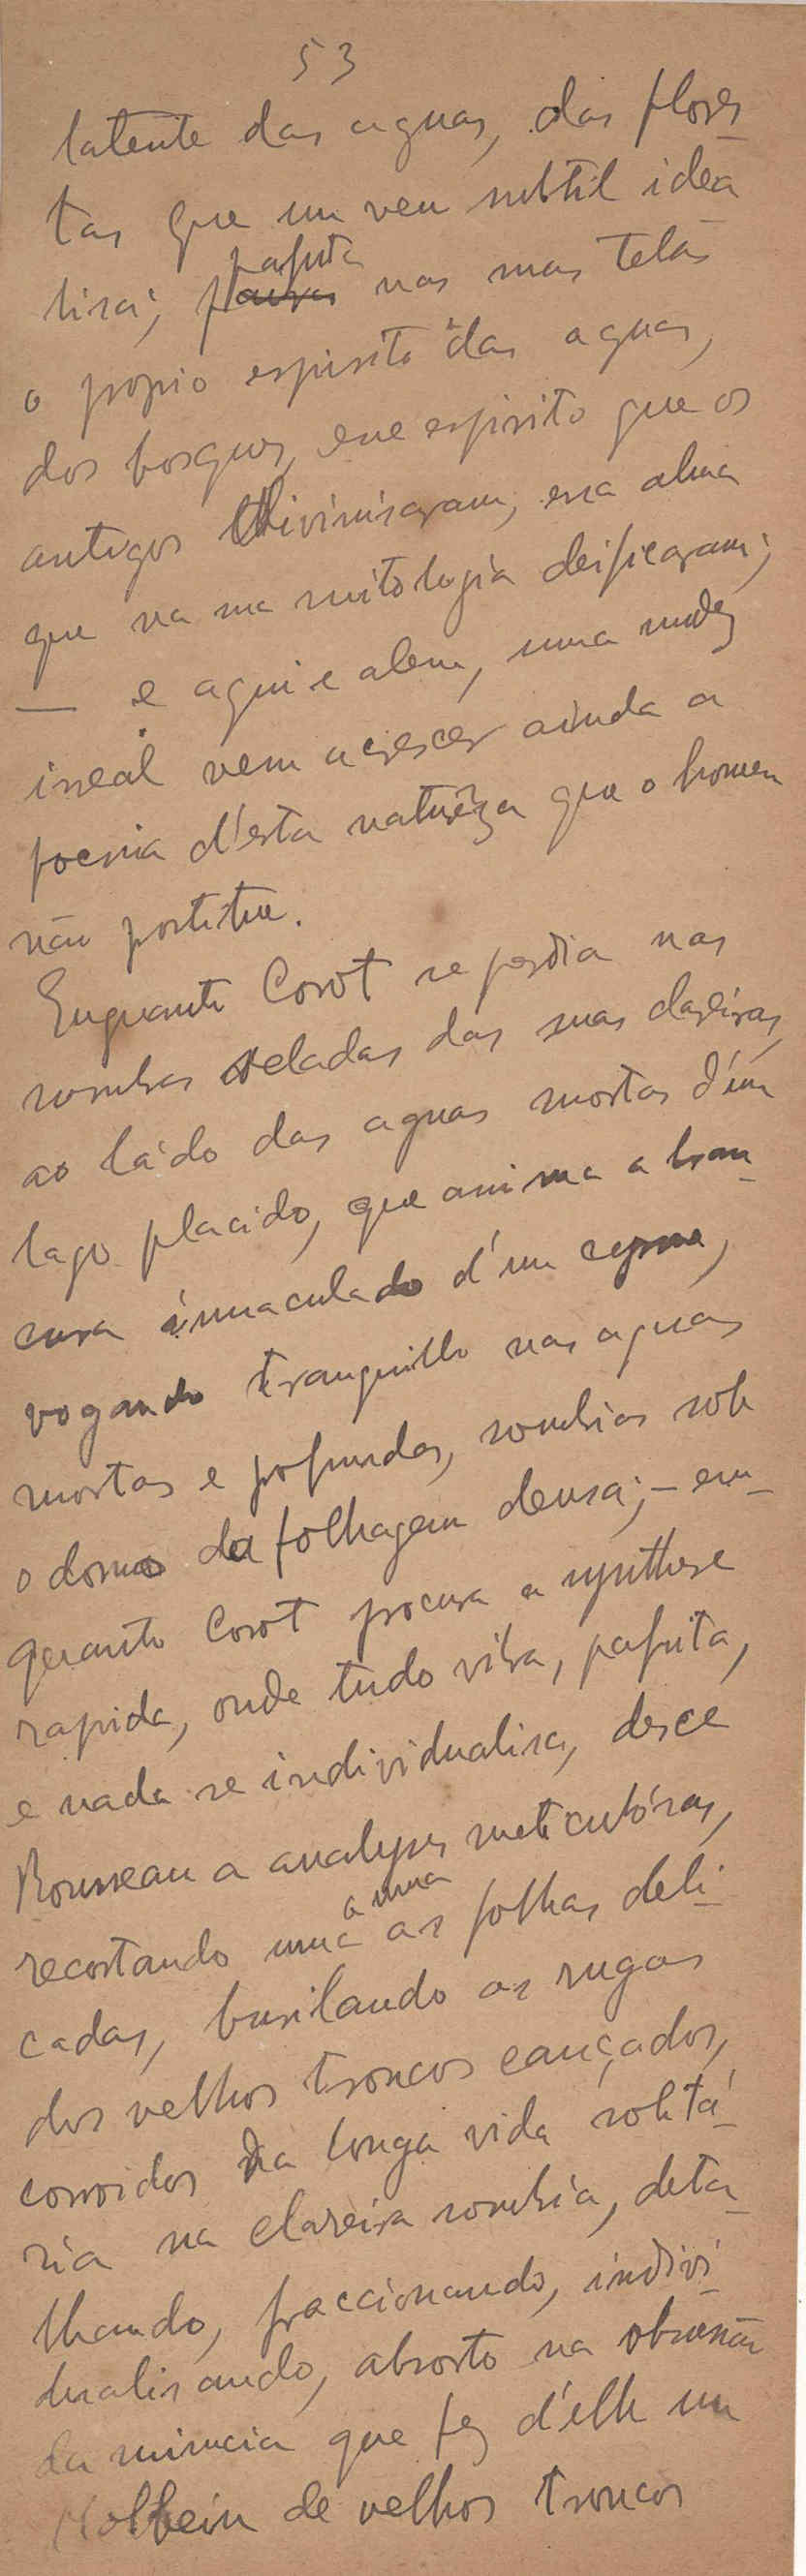 53
latente das aguas, das flores
tas que um veu subtil idea
lisa; palpita nas suas telas
o propio espirito das aguas,
dos bosques, esse espirito que os
antigos divinisaram, essa alma
que na sua mitologia deificaram;
— e aqui e alem, uma nudez
irreal vem acrescer ainda a
poesia d'esta naturêza que o homem
não
Enquanto Corot se perdia nas
sombras veladas das suas clareiras,
ao lado das aguas mortas d'um
lago placido, que anima a bran-
cura immaculada d'um cysne,
vogando tranquillo nas aguas
mortas e profundas, sombrias sob
o domo da folhagem densa; – em-
quanto Corot procura a synthese
rapida, onde tudo vibra, palpita,
e nada se individualisa, desce
Rousseau a analyses meticulósas,
recortando uma a uma as folhas deli-
cadas, burilando as rugas
dos velhos troncos cançados,
corroidos na longa vida solitá-
ria na clareira sombria, deta-
lhando, fraccionando, indivi-
dualisando, absorto na obsessão
da minucia que fez d'elle um
Holbein de velhos troncos